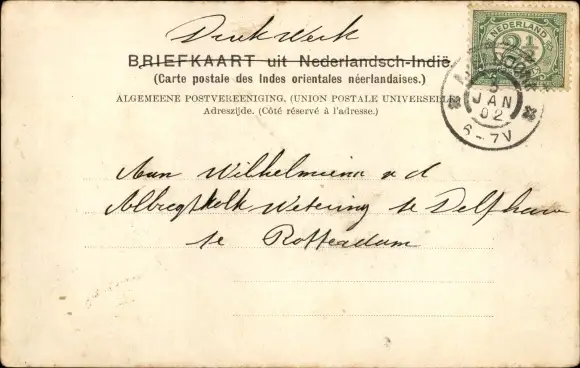 Druk Werk
BRIEFKAART uit Nederlandsch-Indië
(Carte postale des Indes orientales néerlandaises.)
ALGEMEENE POSTVEREENIGING. (UNION POSTALE UNIVERSELLE
Adreszijde. (Côté réservé à l'adresse.)
NEDERLAND
2½
5
JAN
02
6-7V
Aan Wilhelmiena a d
Albregtkolk Wetering te Delfhave
te Rotterdam